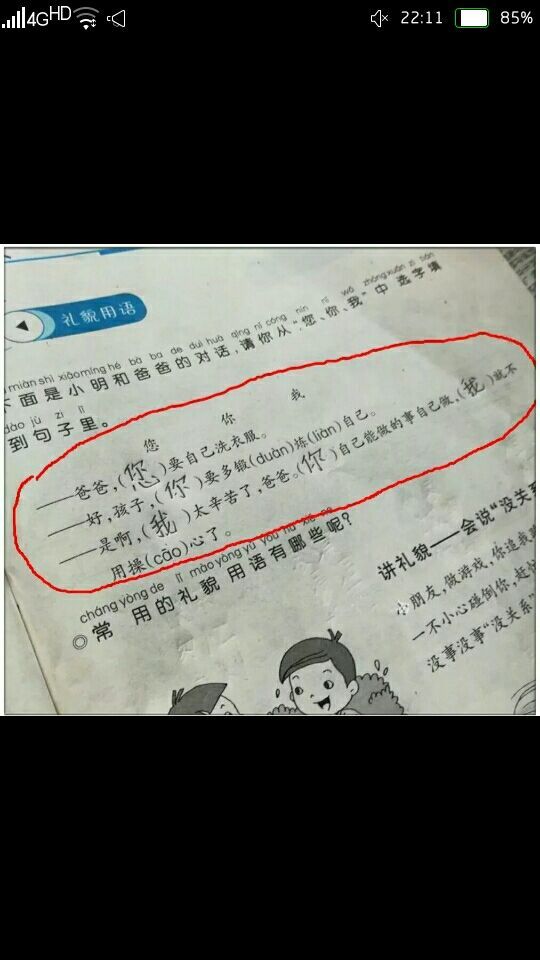 4G HD
22:11
85%
礼貌用语
miàn shì xiǎo míng hé bà ba de duì huà qǐng nǐ cóng nín nǐ wǒ zhōng xuǎn zì tián
下面是小明和爸爸的对话,请你从“您、你、我”中选字填
dào jù zi lǐ
到句子里。
您 你 我
——爸爸,(您)要自己洗衣服。
——好,孩子,(你)要多锻(duàn)炼(liàn)自己。
——是啊,(我)太辛苦了,爸爸。(你)自己能做的事自己做,(我)就不
用操(cāo)心了。
cháng yòng de lǐ mào yòng yǔ yǒu nǎ xiē ne
◎常用的礼貌用语有哪些呢?
讲礼貌——会说“没关系
小朋友,做游戏,你追我
一不小心碰倒你,赶忙
没事没事“没关系”